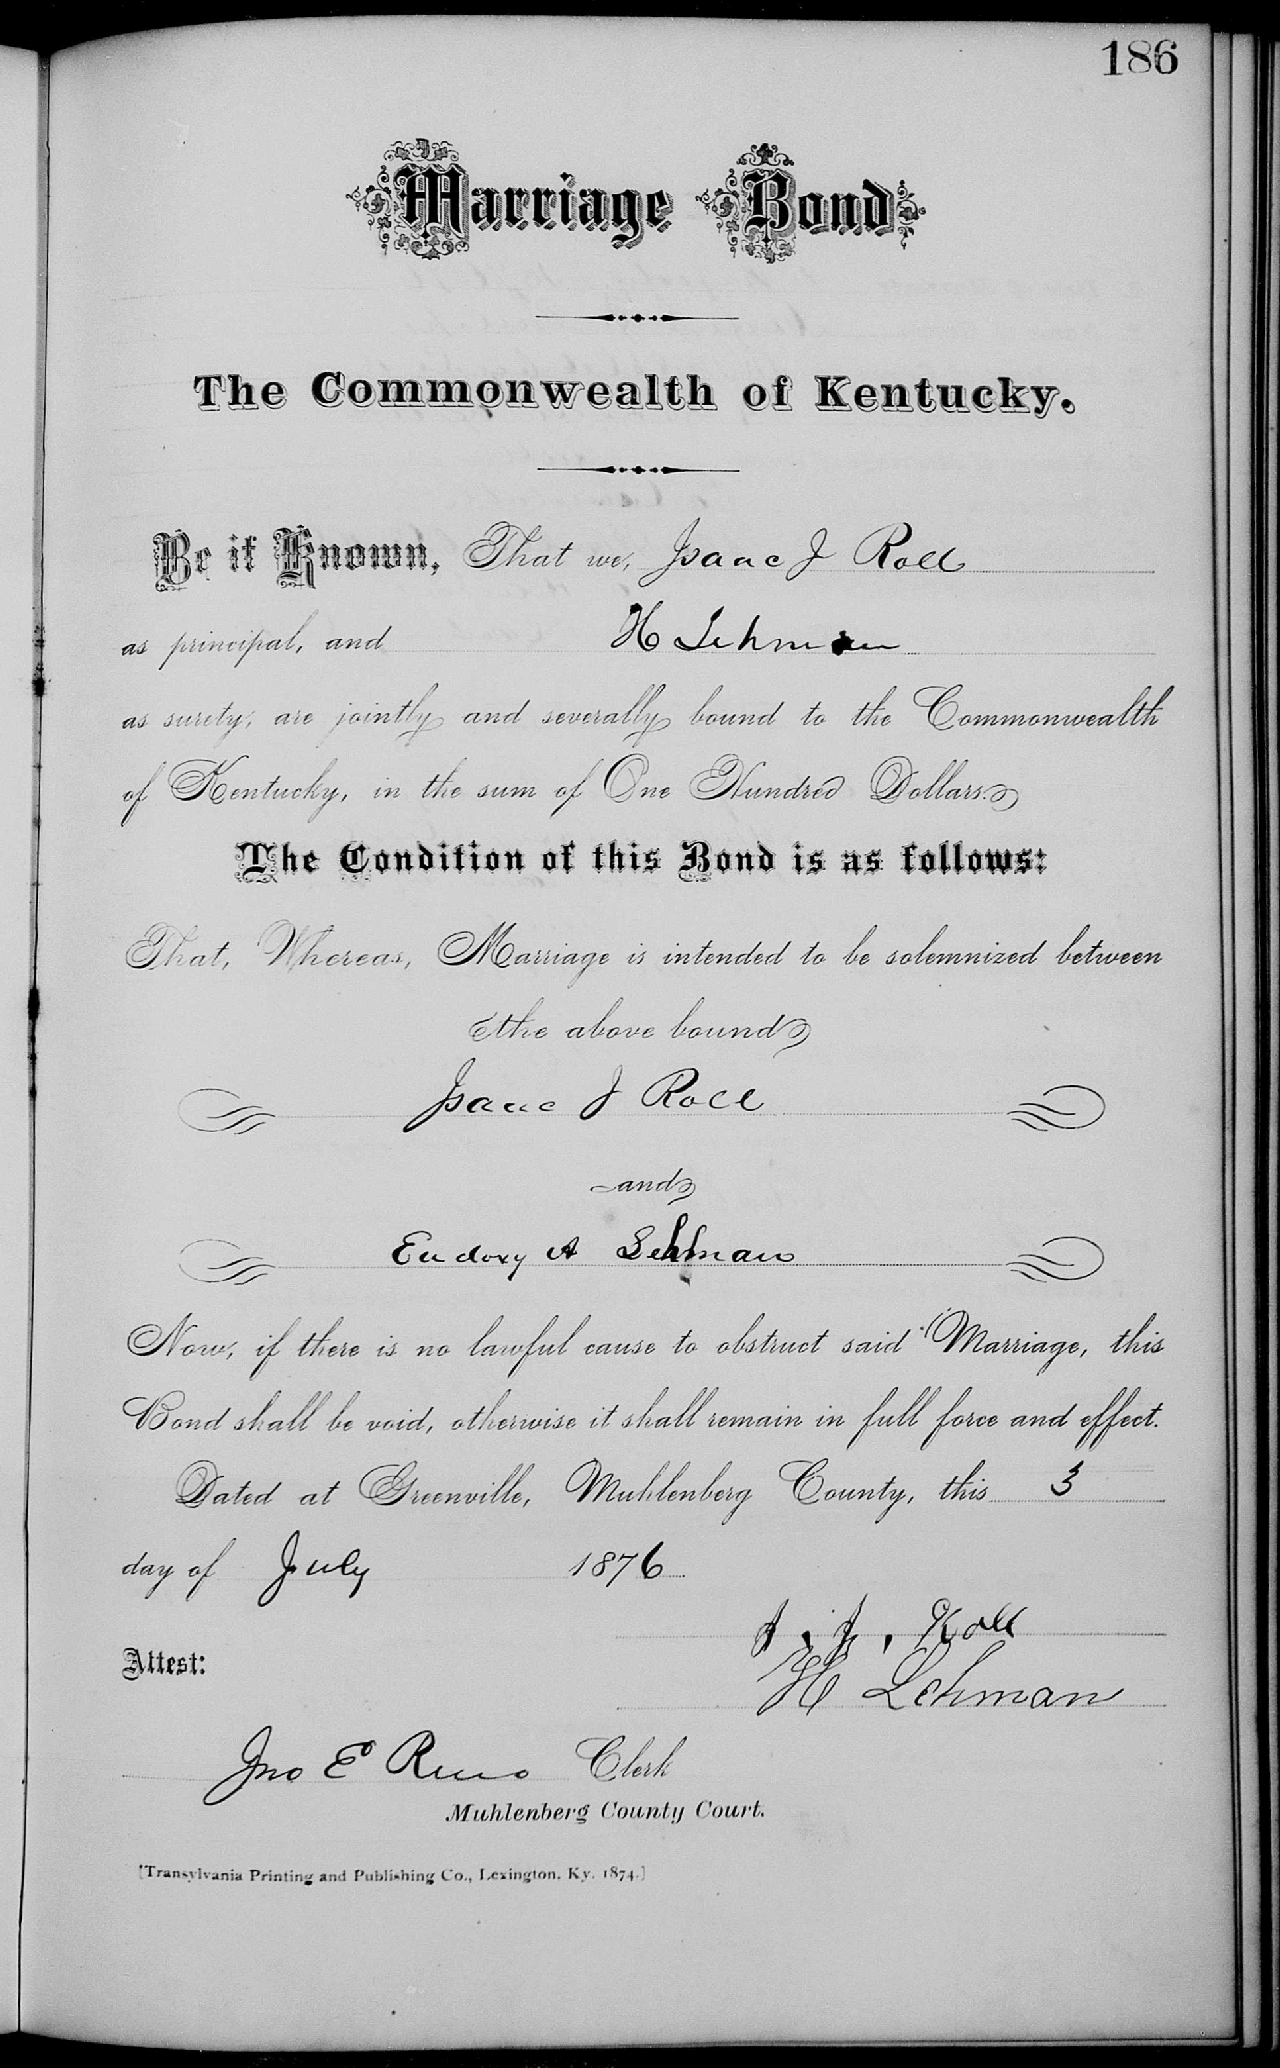 186
Marriage Bond
The Commonwealth of Kentucky.
Be it Known, That we, Isaac J Roll
as principal, and H Lehman
as surety, are jointly and severally bound to the Commonwealth
of Kentucky, in the sum of One Hundred Dollars.
The Condition of this Bond is as follows:
That, Whereas, Marriage is intended to be solemnized between
the above bound
Isaac J Roll
and
Eudoxy A Lehman
Now, if there is no lawful cause to obstruct said Marriage, this
Bond shall be void, otherwise it shall remain in full force and effect.
Dated at Greenville, Muhlenberg County, this 3
day of July 1876
J. J. Roll
Attest:
H Lehman
Jno E Reno Clerk
Muhlenberg County Court.
[Transylvania Printing and Publishing Co., Lexington. Ky. 1874.]